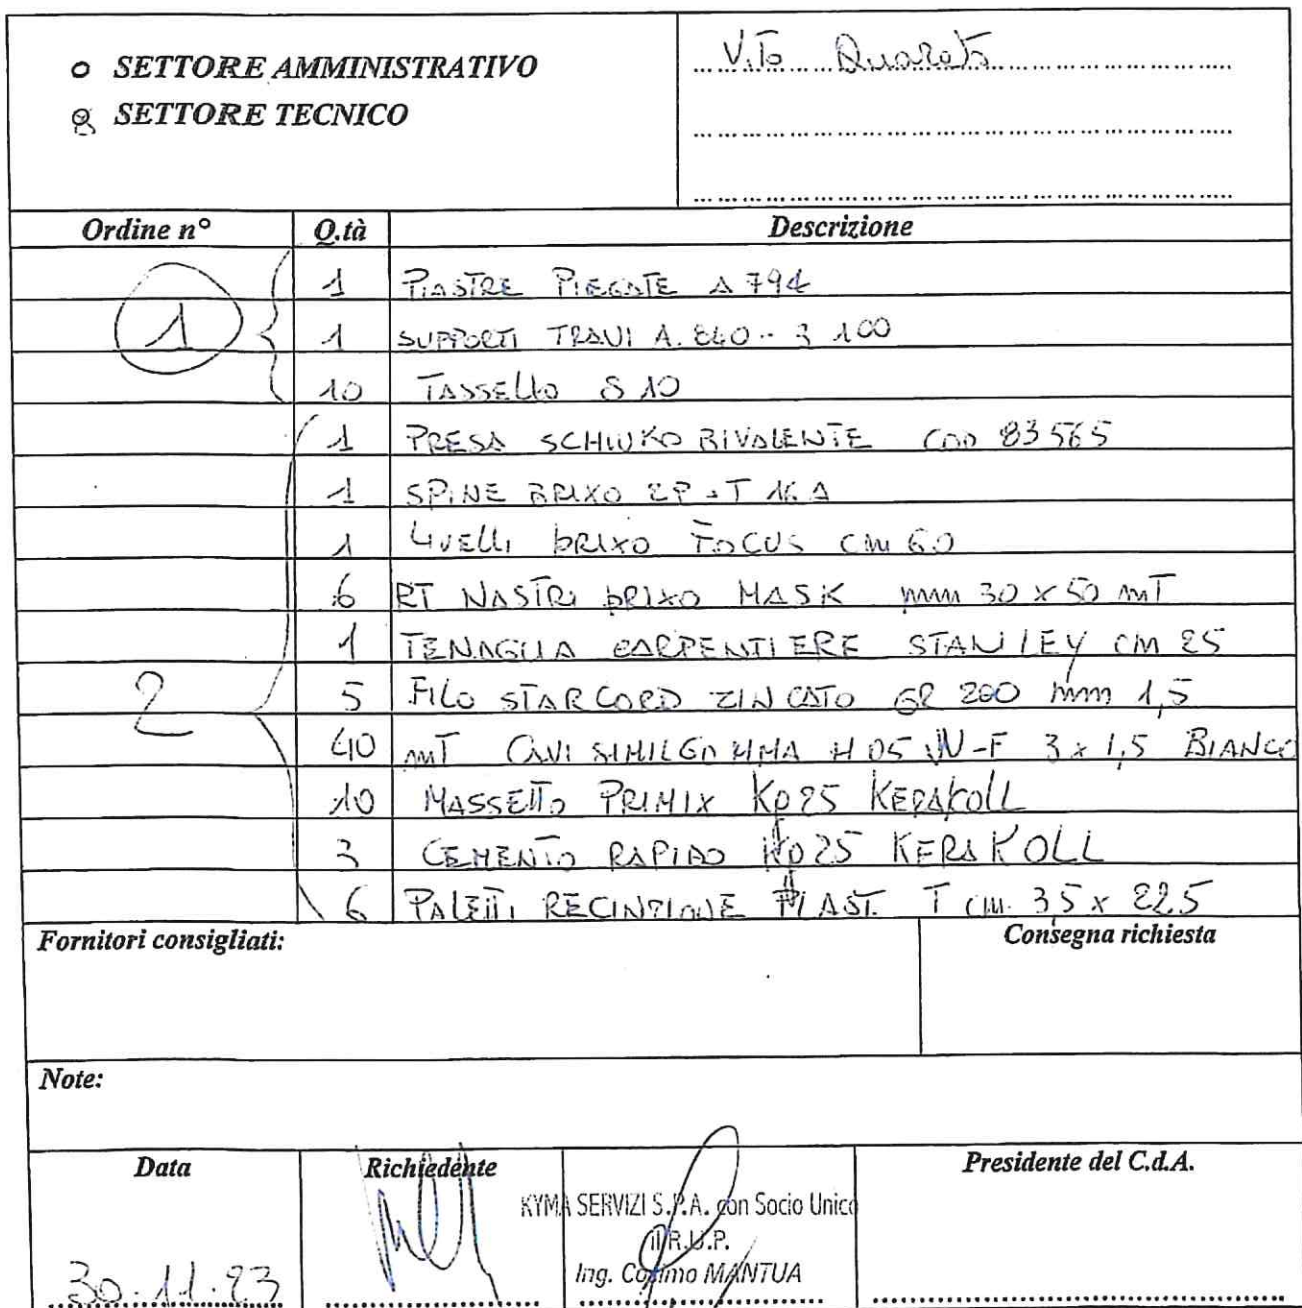 o SETTORE AMMINISTRATIVO
SETTORE TECNICO
Vito Quaranta
Ordine n° Q.tà Descrizione
1 PIASTRE PIEGATE A 794
1 1 SUPPORTI TRAVI A. 840 - 3 100
10 TASSELLO S 10
1 PRESA SCHUKO BIVALENTE COD 83565
1 SPINE BRIXO 2P+T 16 A
1 LIVELLI BRIXO FOCUS CM 60
6 RT NASTRI BRIXO MASK mm 30 x 50 mT
1 TENAGLIA CARPENTIERE STANLEY CM 25
2 5 FILO STARCORD ZINCATO GR 200 mm 1,5
40 mT CAVI SIMILGOMMA H 05 VV-F 3 x 1,5 BIANCO
10 MASSETTO PRIMIX Kg 25 KERAKOLL
3 CEMENTO RAPIDO Kg 25 KERAKOLL
6 PALETTI RECINZIONE PLAST. T CM. 35 x 225
Fornitori consigliati: Consegna richiesta
Note:
Data Richiedente Presidente del C.d.A.
KYMA SERVIZI S.P.A. con Socio Unico
il R.U.P.
Ing. Cosimo MANTUA
30.11.23